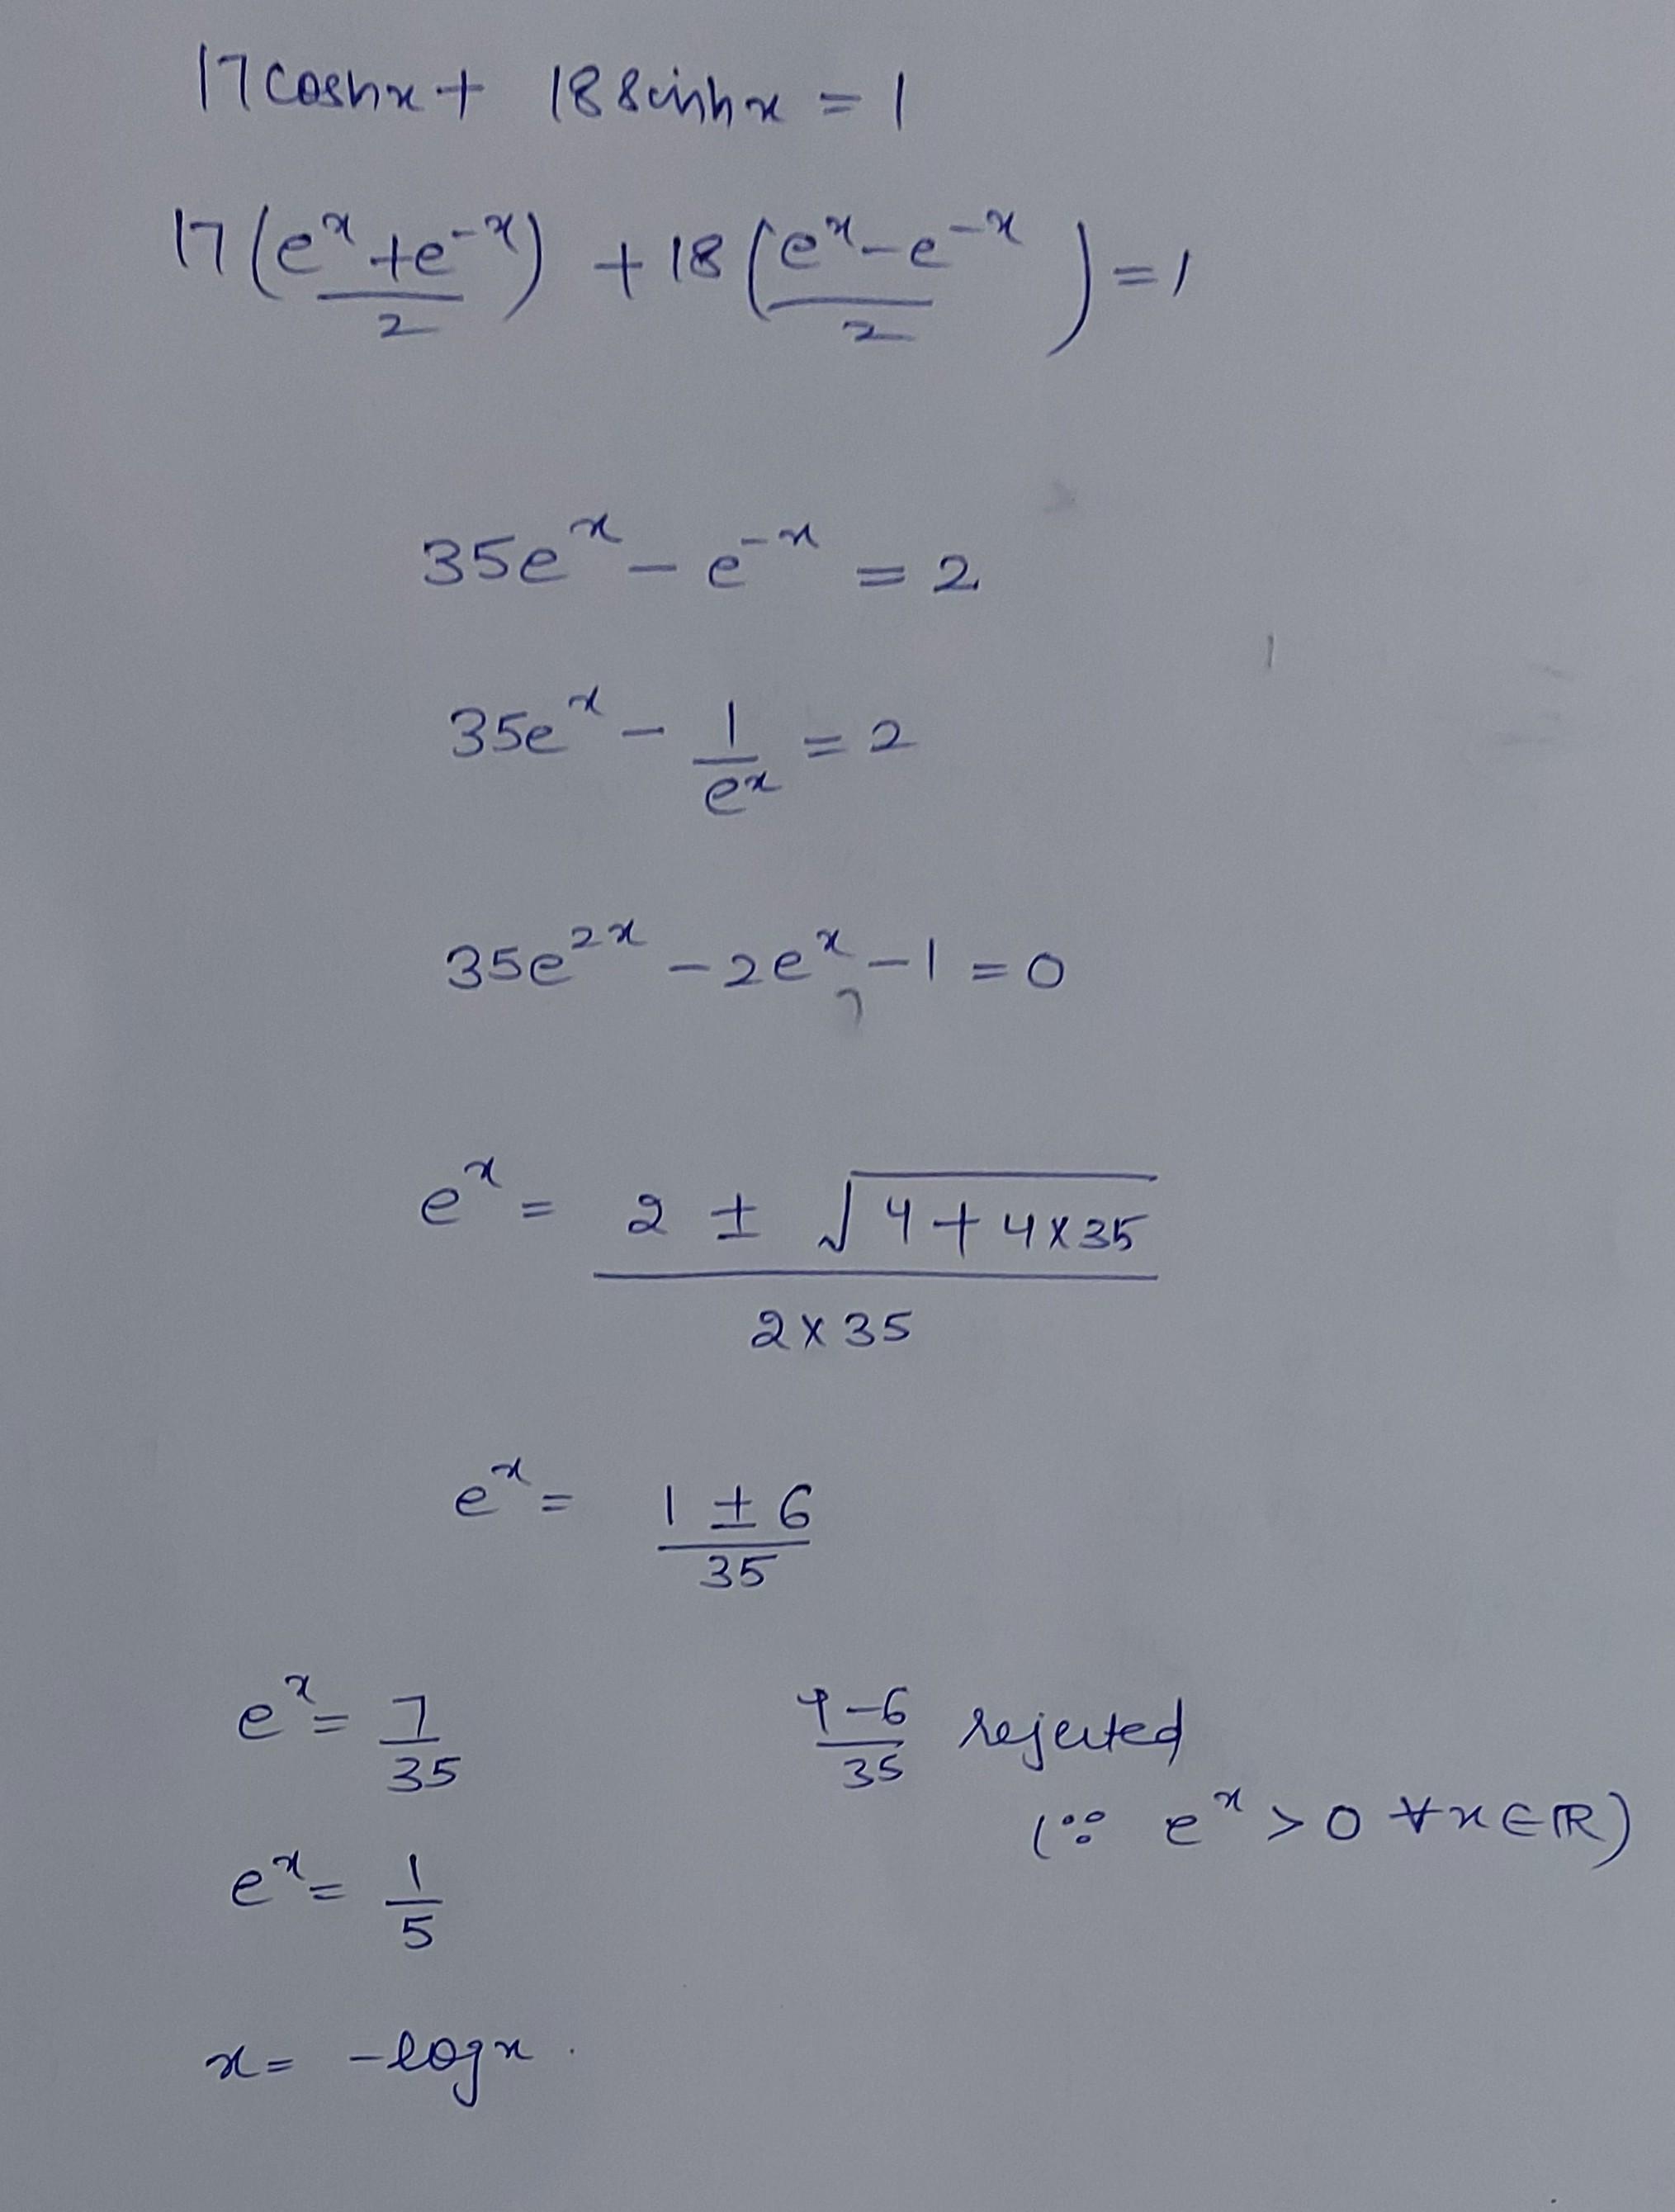 17coshx + 18sinhx = 1
17(e^x+e^-x / 2) + 18(e^x-e^-x / 2) = 1
35e^x - e^-x = 2
35e^x - 1/e^x = 2
35e^2x - 2e^x - 1 = 0
e^x = 2 ± √4+4×35 / 2×35
e^x = 1 ± 6 / 35
e^x = 7/35 9-6/35 rejected
(∵ e^x > 0 ∀x∈ℝ)
e^x = 1/5
x = -logx.